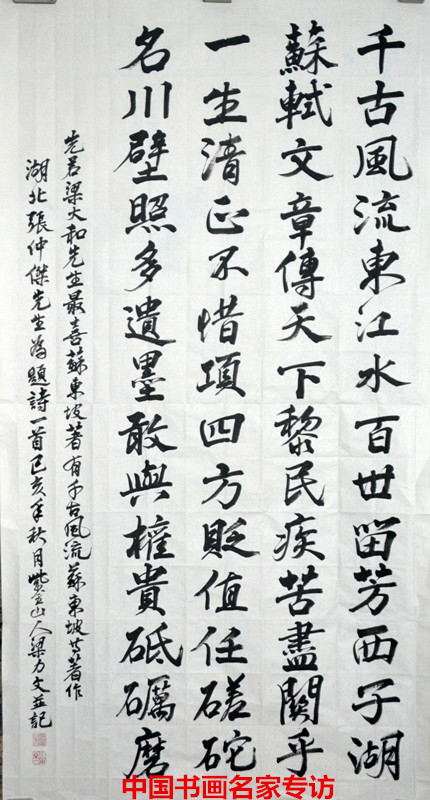 千古風流東江水百世留芳西子湖
蘇軾文章傳天下黎民疾苦盡關乎
一生清正不惜項四方貶值任磋砣
名川壁照多遺墨敢與權貴砥礪磨
先君梁大和先生最喜蘇東坡著有千古風流蘇東坡等著作
湖北張仲傑先生為題詩一首己亥年秋月紫山人梁力文並記
中国书画名家专访